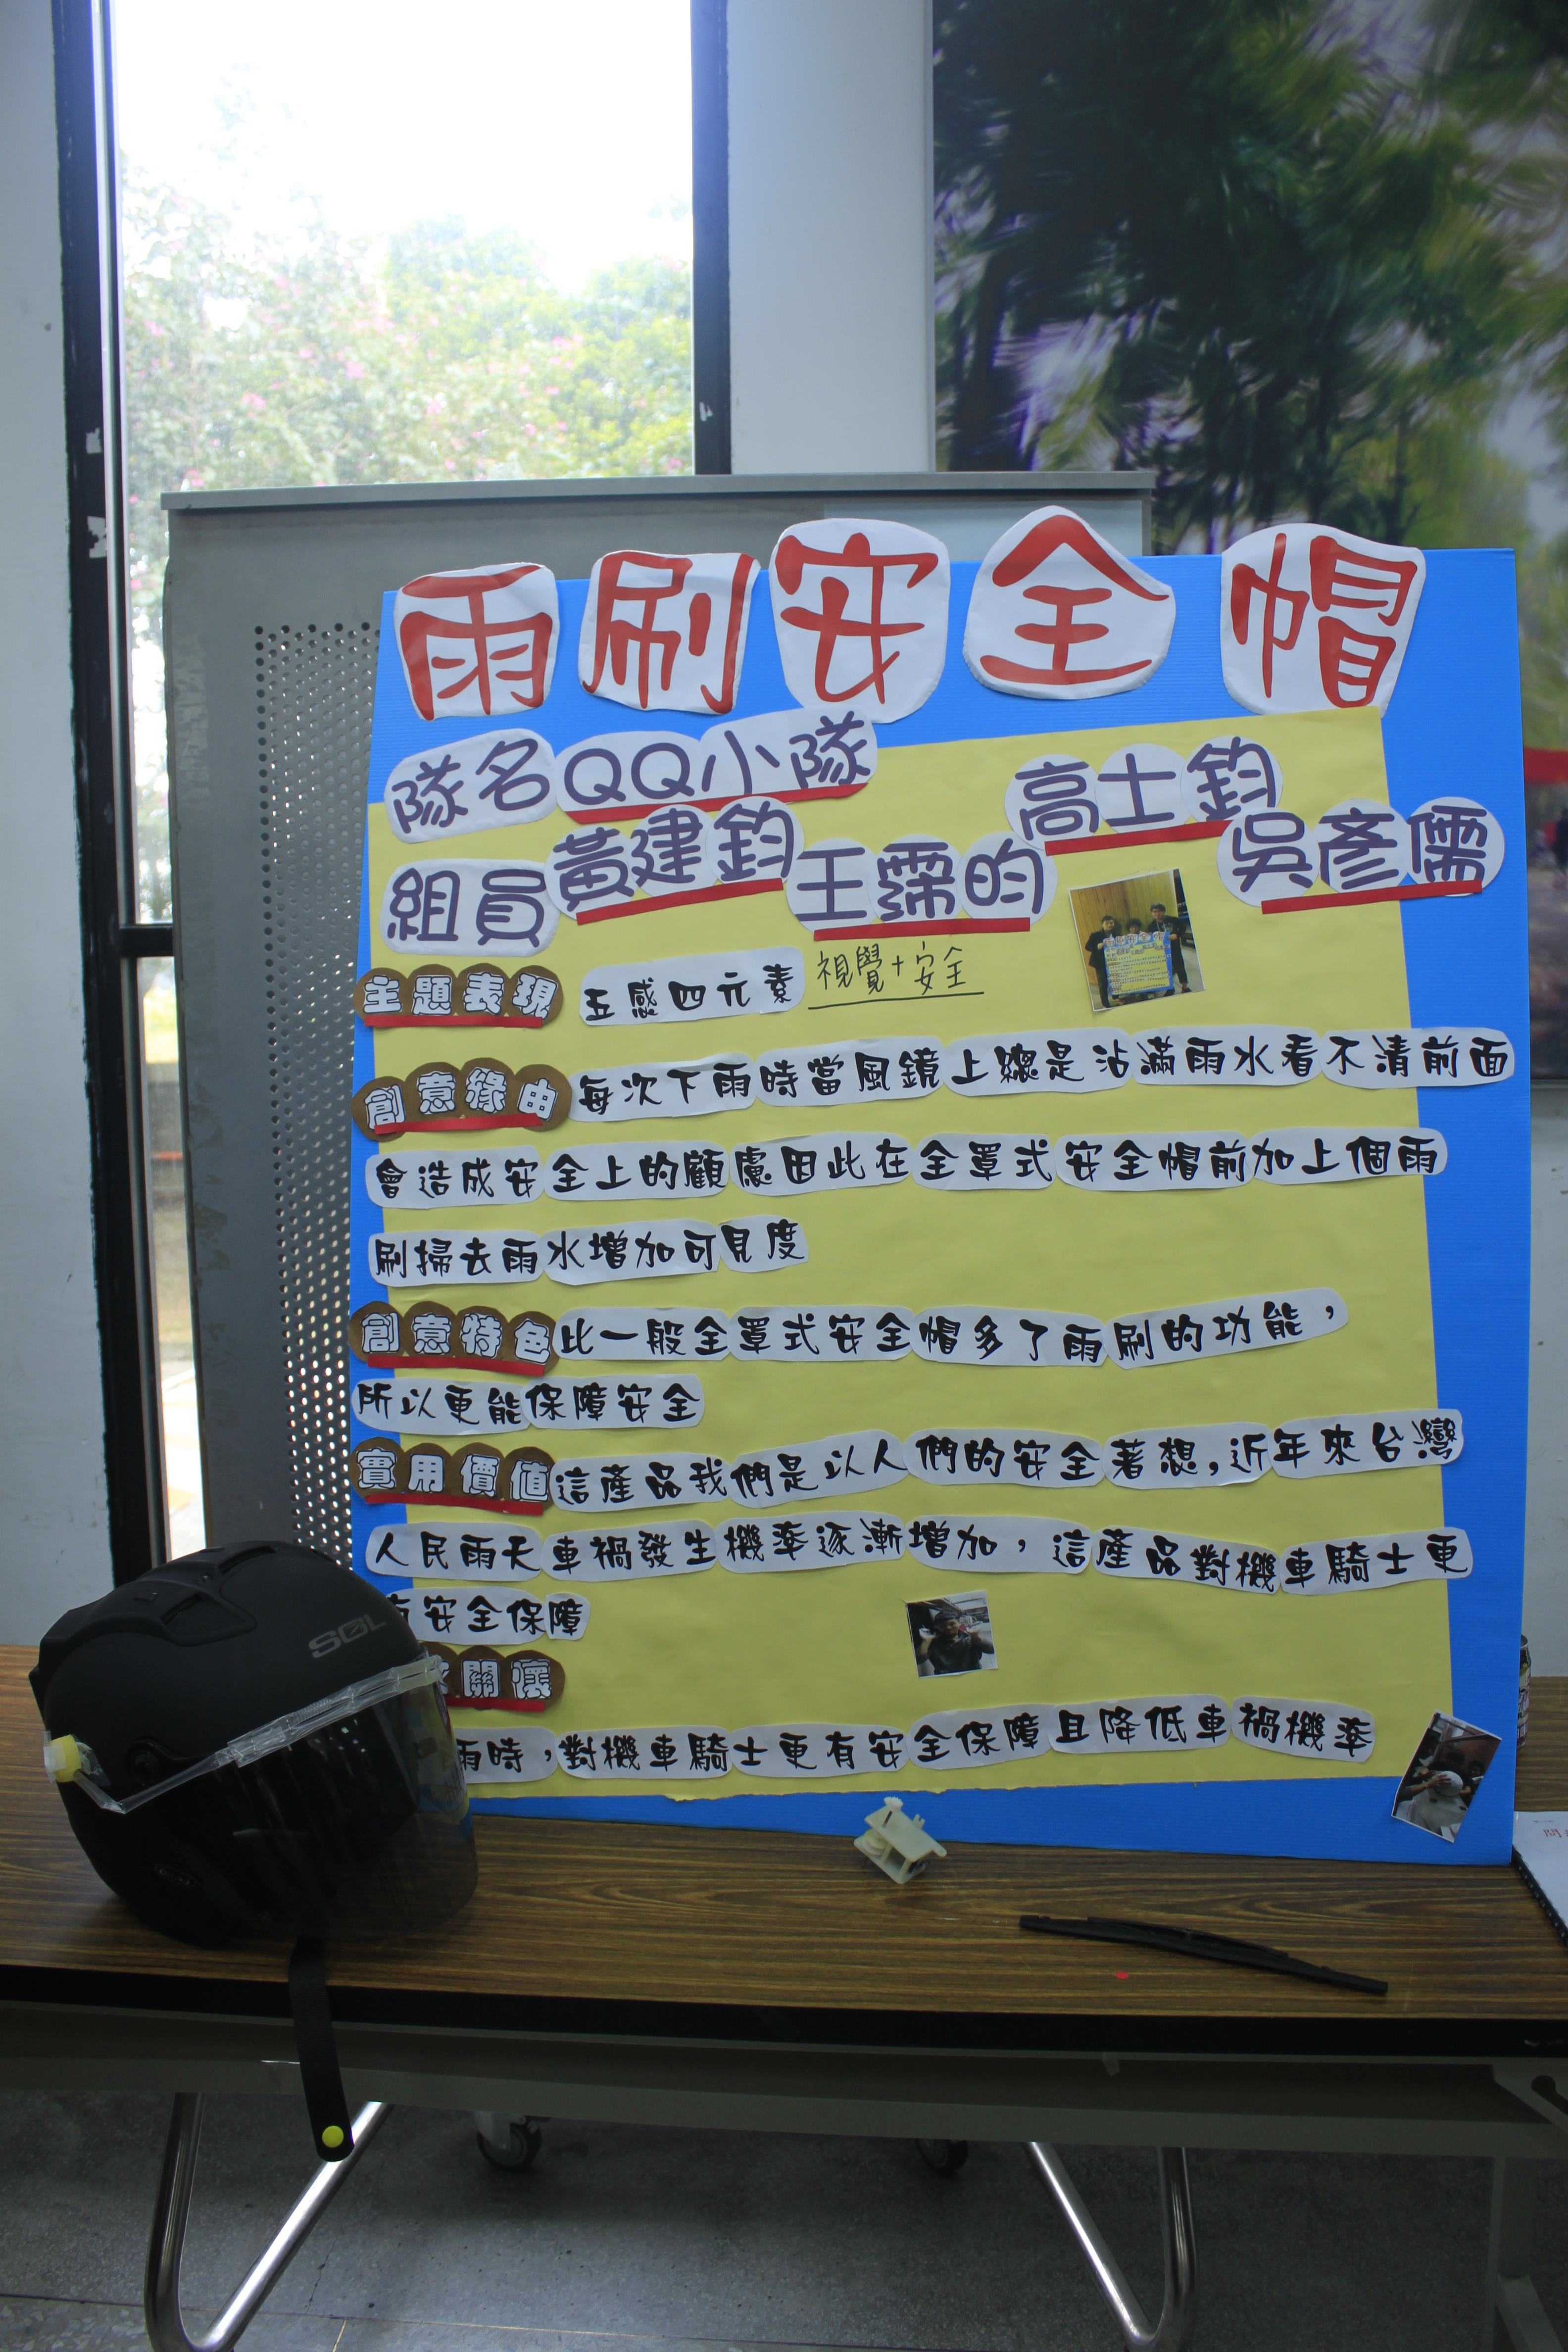 雨刷安全帽
隊名 QQ小隊
組員 黃建鈞 王霈昀 高士鈞 吳彥儒
主題表現 五感四元素 視覺+安全
創意緣由 每次下雨時當風鏡上總是沾滿雨水看不清前面
會造成安全上的顧慮因此在全罩式安全帽前加上個雨
刷掃去雨水增加可見度
創意特色 比一般全罩式安全帽多了雨刷的功能，
所以更能保障安全
實用價值 這產品我們是以人們的安全著想，近年來台灣
人民雨天車禍發生機率逐漸增加，這產品對機車騎士更
安全保障
關懷
雨時，對機車騎士更有安全保障且降低車禍機率
SOL